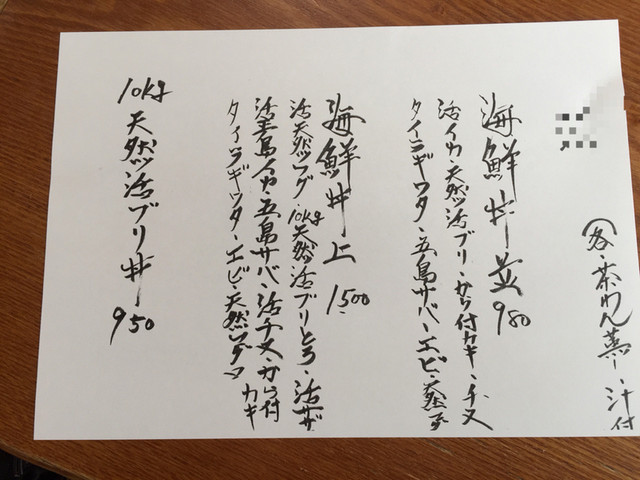 各・茶わん蒸し・汁付
海鮮丼並 980
活イカ・天然活ブリ・から付カキ・チヌ
タイラギワタ・五島サバ・エビ・天然
海鮮丼上 1500
活天然フグ・10kg天然活ブリとろ・活サザ
活素イカ・五島サバ・活チヌ・から付カキ
タイラギワタ・エビ・天然マグロ
10kg天然活ブリ丼 950